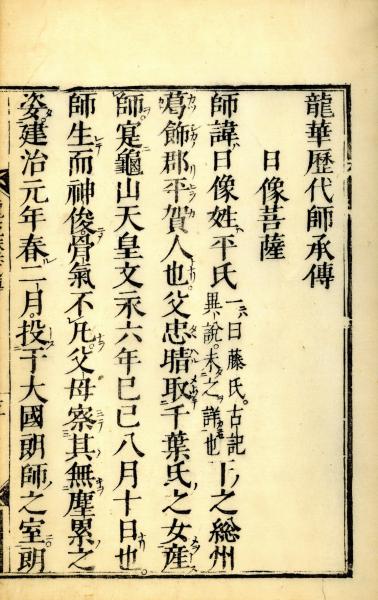 龍華歷代師承傳
日像菩薩
師諱日像姓平氏一曰藤氏古記異說未之詳也下之總州
葛飾郡平賀人也父忠晴取千葉氏之女産
師寔龜山天皇文永六年己巳八月十日也
師生而神俊骨氣不凡父母察其無塵累之
姿建治元年春二月投于大國朗師之室朗